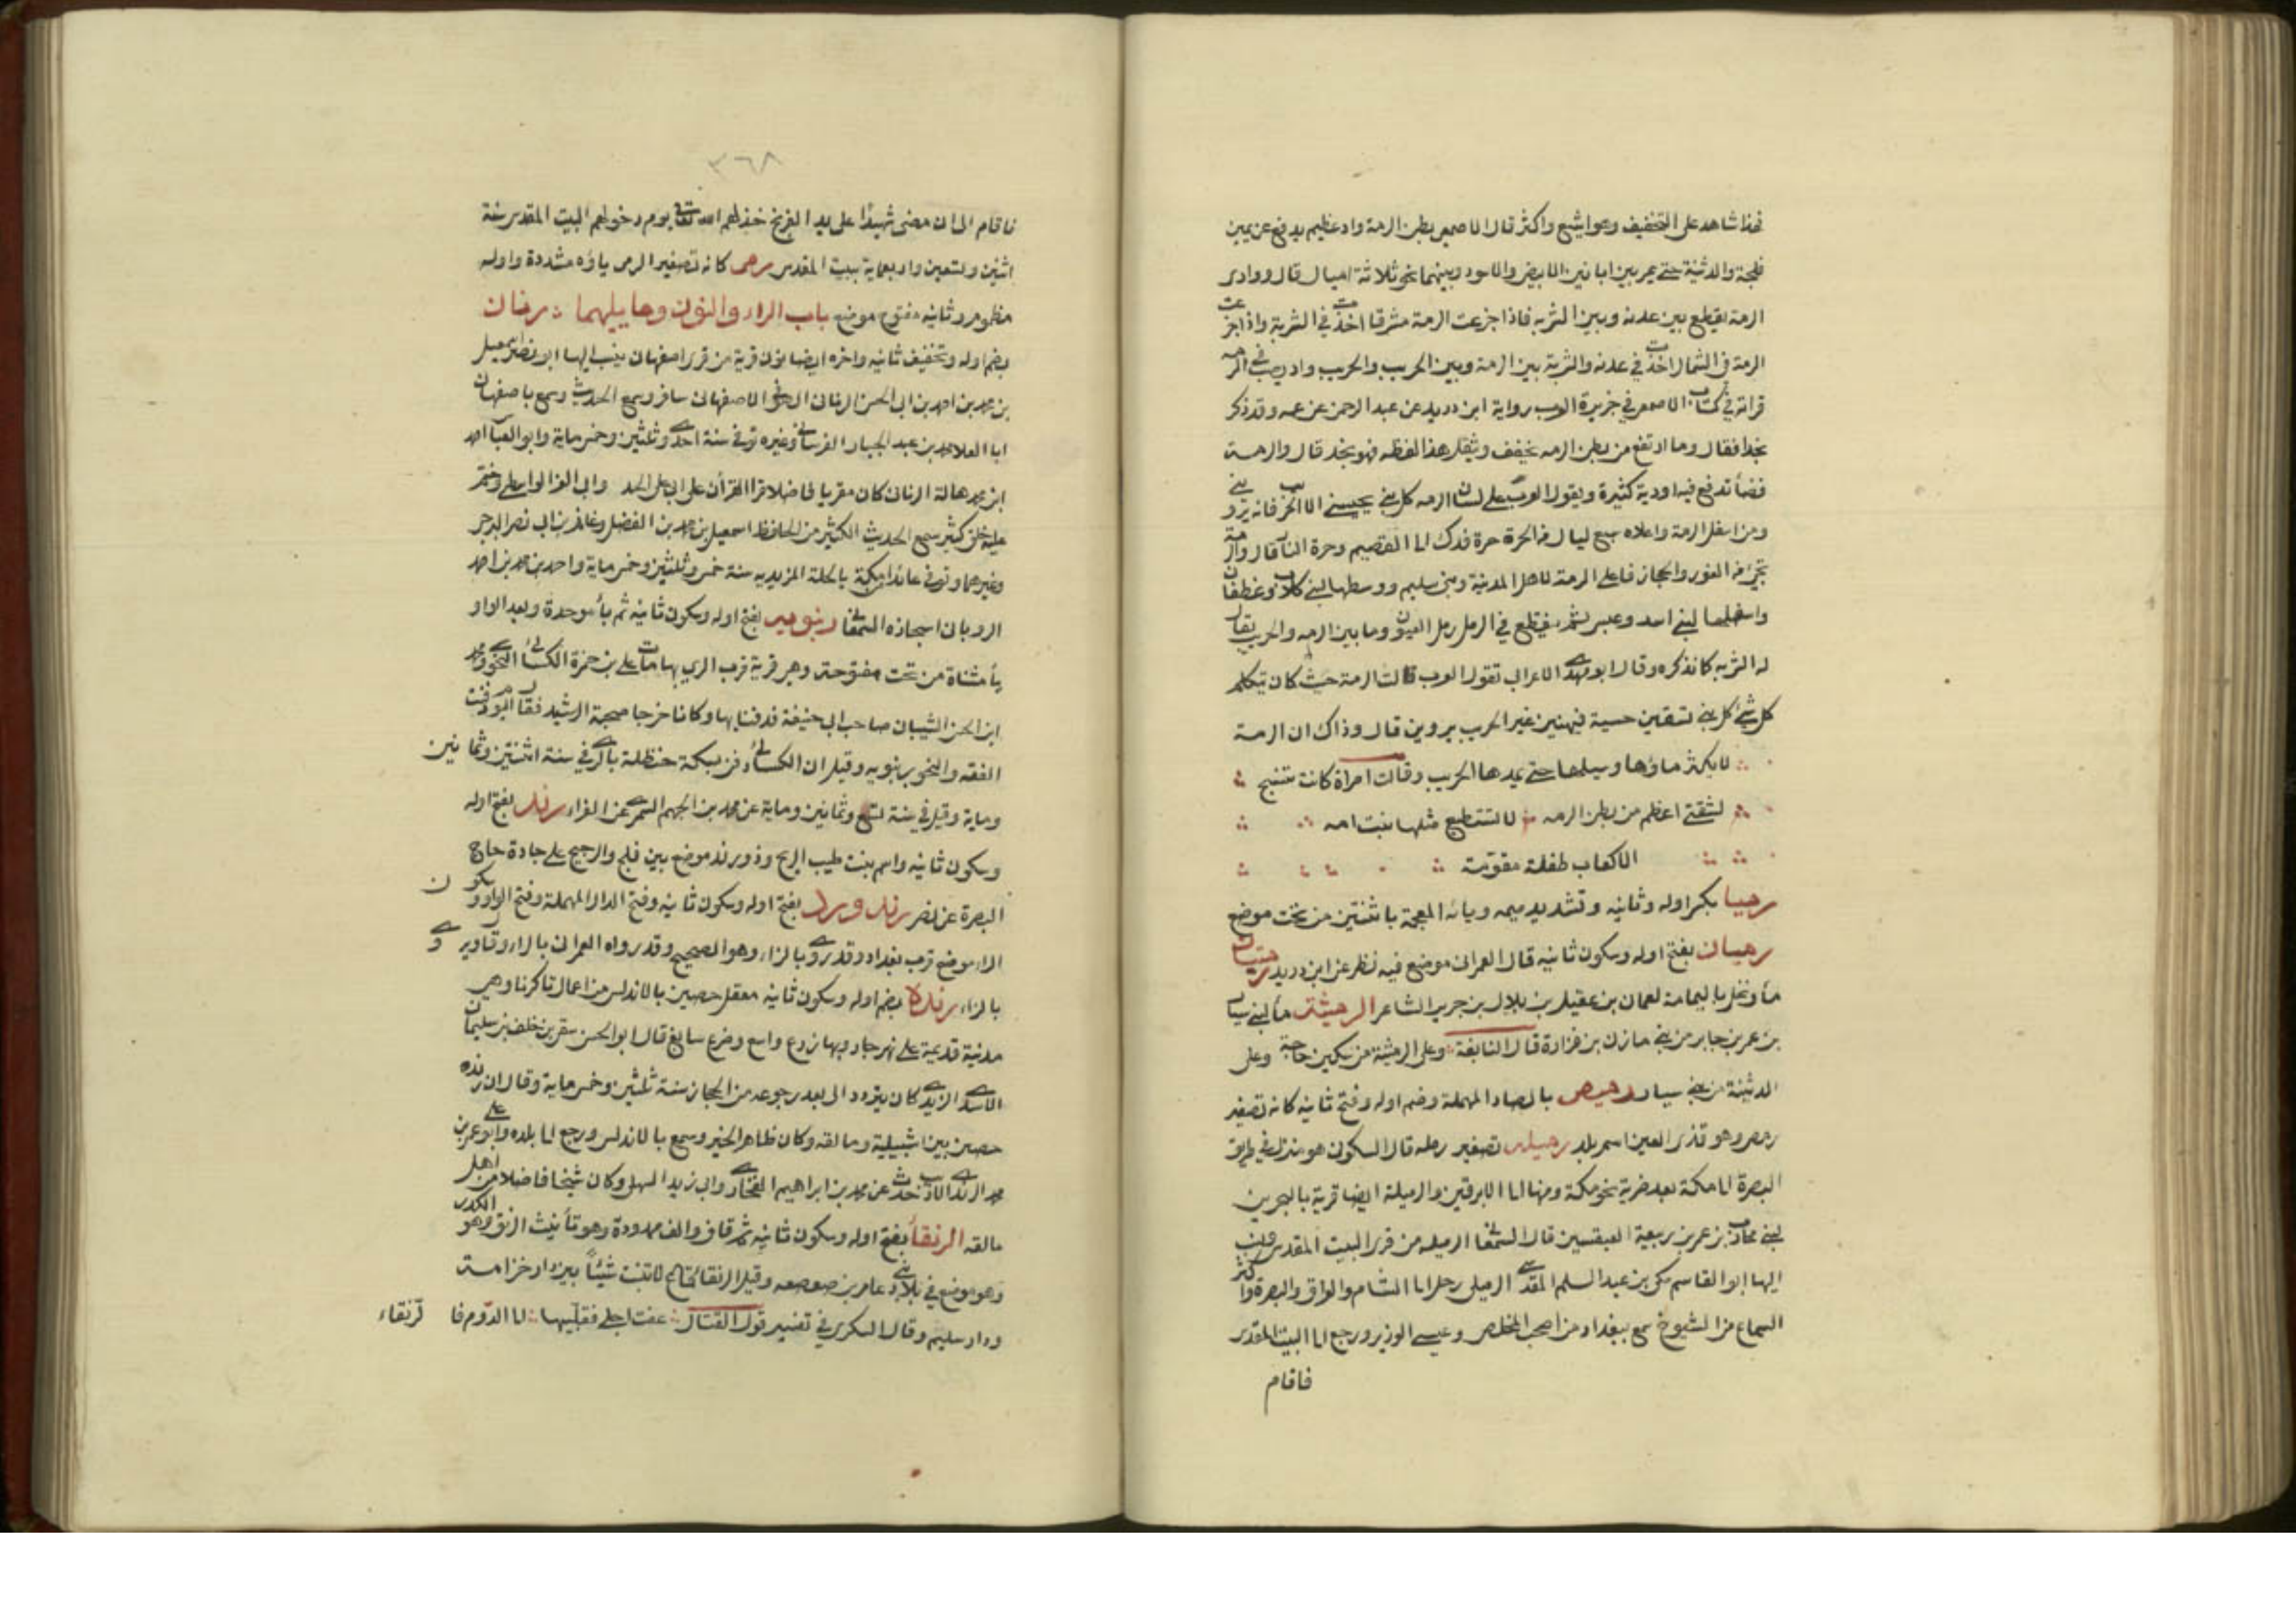 فهذا شاهد على التخفيف وهو اشيع واكثر قال الاصمعى بطن الرمة واد عظيم يدفع عن يمين
فلجة والدثينة حتى يمر بين ابانين الابيض والاسود وبينهما نحو ثلاثة اميال قال ووادى
الرمة يقطع بين عدنه وبين الشربه فاذا جزعت الرمة مشرقا اخذت فى الشربة واذا جزعت
الرمة فى الشمال اخذت فى عدنه والشربة بين الرمة وبين الجريب والجريب واد يصب فى الرمه
قراته فى كتاب الاصمعى فى جزيرة العرب رواية ابن دريد عن عبد الرحمن عن عمه وقد ذكر
نجدا فقال وما ارتفع من بطن الرمه يخفف ويثقل هذا لفظه فهو نجد قال والرمة
فضأ تدفع فيه اودية كثيرة ويقول العرب على لسان الرمه كل بنى يحسينى الا الجريب فانه يروينى
ومن اسفل الرمة واعلاه سبع ليال من الحرة حرة فدك الى القصيم وحرة النار قال والرمة
تجئ من الغور والحجاز فاعلى الرمة لاهل المدينة وبنى سليم ووسطها لبنى كلاب وغطفان
واسفلها لبنى اسد وعبس ثم ينقطع فى الرمل رمل العيون وما بين الرمه والجريب يقال
له الشربه كما نذكره وقال ابو مهدى الاعرابى تقول العرب قالت الرمة حيث كان تتكلم
كل شئ كل بنى تسقين حسية فيهنين غير الجريب يروين قال وذاك ان الرمة
لا يكثر ماؤها وسيلها حتى يمدها الجريب وقالت امراة كانت تنسج
لشقتى اعظم من بطن الرمه لا تستطيع مثلها بنت امه
الا كعاب طفلة مقومة
رميا بكسر اوله وثانيه وتشديد ميمه ويائه المعجمة باثنتين من تحت موضع
رميان بفتح اوله وسكون ثانيه قال العمرانى موضع فيه نظر عن ابن دريد
مأ ونخل باليمامة لعمان بن عقيل بن بلال بن جرير الشاعر الرميثة مأ لبنى سيار
بن عمرو بن جابر من بنى مازن بن فزارة قال النابغة وعلى الرميثة من سكين حاجة وعلى
الدثينة من بنى سيار رميص بالصاد المهملة وضم اوله وفتح ثانيه كانه تصغير
رمص وهو قذى العين اسم بلد رميله تصغير رمله قال السكونى هو منزل فى طريق
البصرة الى مكة بعد ضرية نحو مكة ومنها الى الابرقين والرميلة ايضا قرية بالبحرين
لبنى محارب بن عمرو بن ربيعة العبقسيين قال السمعانى الرميله من قرى البيت المقدس ينسب
اليها ابو القاسم مكى بن عبد السلم المقدسى الرميلى رحل الى الشام والعراق والبصرة واكثر
السماع من الشيوخ سمع ببغداد من اصحب المخلص وعيسى الوزير ورجع الى البيت المقدس
فاقام
٣٦٨
فاقام الى ان مضى شهيدًا على يد الفرنج خذلهم الله تعالى يوم دخولهم البيت المقدس سنة
اثنين وتسعين واربعماية ببيت المقدس رمى كانه تصغير الرمى ياؤه مشددة واوله
مظموم وثانيه مفتوح موضع باب الراء والنون وما يليهما رنان
بضم اوله وتخفيف ثانيه واخره ايضا نون قرية من قرى اصفهان ينسب اليها ابو نصر اسمعيل
بن محمد بن احمد بن ابى الحسن الرنانى الصوفى الاصفهانى سافر وسمع الحديث وسمع باصفهان
ابا العلا محمد بن عبد الجبار الفرسانى وغيره توفى سنة احدى وثلثين وخمس ماية وابو العباس احمد
ابن محمد هالة الرنانى كان مقريا فاضلا قرا القرأن على ابى على الحداد وابى العز الواسطى وختم
عليه خلق كثير سمع الحديث الكثير من الحافظ اسمعيل بن محمد بن الفضل وغانم بن ابى نصر البرجى
وغيرهما وتوفى عائدا من مكة بالحلة المزيديه سنة خمس وثلثين وخمس ماية واحمد بن محمد بن احمد
الرو بان اسجازه السمعانى رنبويه بفتح اوله وسكون ثانيه ثم بأ موحدة وبعد الواو
يأ مثناة من تحت مفتوحة وهى قرية قرب الرى بها مات على بن حمزة الكسائى النحوى ومحمد
ابن الحسن الشيبانى صاحب ابى حنيفة فدفنا بها وكانا خرجا صحبة الرشيد فقال اليوم دفنت
الفقه والنحو برنبويه وقيل ان الكسائى دفن بسكة حنظلة بالرى فى سنة اثنتين وثمانين
وماية وقيل فى سنة تسع وثمانين وماية عن محمد بن الجهم السمرى عن الفراء رند بفتح اوله
وسكون ثانيه واسم بنت طيب الريح وذو رند موضع بين فلج والرجيج على جادة حاج
البصرة عن نصر رندورد بفتح اوله وسكون ثانيه وفتح الدال المهملة وفتح الواو وسكون
الراء موضع قرب بغداد وقد روى بالزاء وهو الصحيح وقد رواه العمرانى بالراء وقد اورد
بالزاء رندة بضم اوله وسكون ثانيه معقل حصين بالاندلس من اعمال تاكرنا وهى
مدينة قديمة على نهر جار وبها زرع واسع وضرع سابغ قال ابو الحسن سفر بن خلف بن سليمان
الاسدى الرندى كان يتردد الى بعد رجوعه من الحجاز سنة ثلثين وخمس ماية وقال ان رنده
حصين بين اشبيلية ومالقه وكان ظاهر الخير وسمع بالاندلس ورجع الى بلده وابو على عمر بن
محمد الرندى الاديب حدث عن محمد بن ابراهيم الفخار وابى زيد السهلى وكان شيخا فاضلا من اهل
مالقه الرنقأ بفتح اوله وسكون ثانيه ثم قاف والف ممدودة وهو تأنيث الرنق وهو الكدر
وهو موضع فى بلاد بنى عامر بن صعصعه وقيل الرنقأ قاع لا تنبت شيئًا بين دار خزامة
ودار سليم وقال السكرى فى تفسير قول القتال عفت اجلى فقليبها الى الدوم فالرنقاء